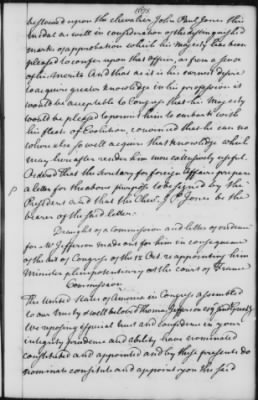 1678
bestowed upon the chevalier John Paul Jones this
medal as well in consideration of the distinguished
marks of approbation which his Majesty has been
pleased to confer upon that officer, as from a sense
of his merits And that as it is his earnest desire
to acquire greater knowledge in his profession it
would be acceptable to Congress that his Majesty
would be pleased to permit him to embark with
his fleets of Evolution, convinced that he can no
where else so well acquire that knowledge which
may hereafter render him more extensively useful.
Ordered that the Secretary for foreign Affairs prepare
a letter for the above purpose to be signed by the
President and that the Chevr. J P. Jones be the
bearer of the said letter.
Draught of a Commission and letter of credence
for Mr Jefferson made out for him in consequence
of the act of Congress of the 12 Oct appointing him
Minister plenipotentiary at the court of France
Commission
The United States of America in Congress assembled
to our trusty & well beloved Thomas Jefferson esqr Greeting
We reposing especial trust and confidence in your
integrity prudence and ability have nominated
constituted and appointed and by these presents do
nominate constitute and appoint you the said